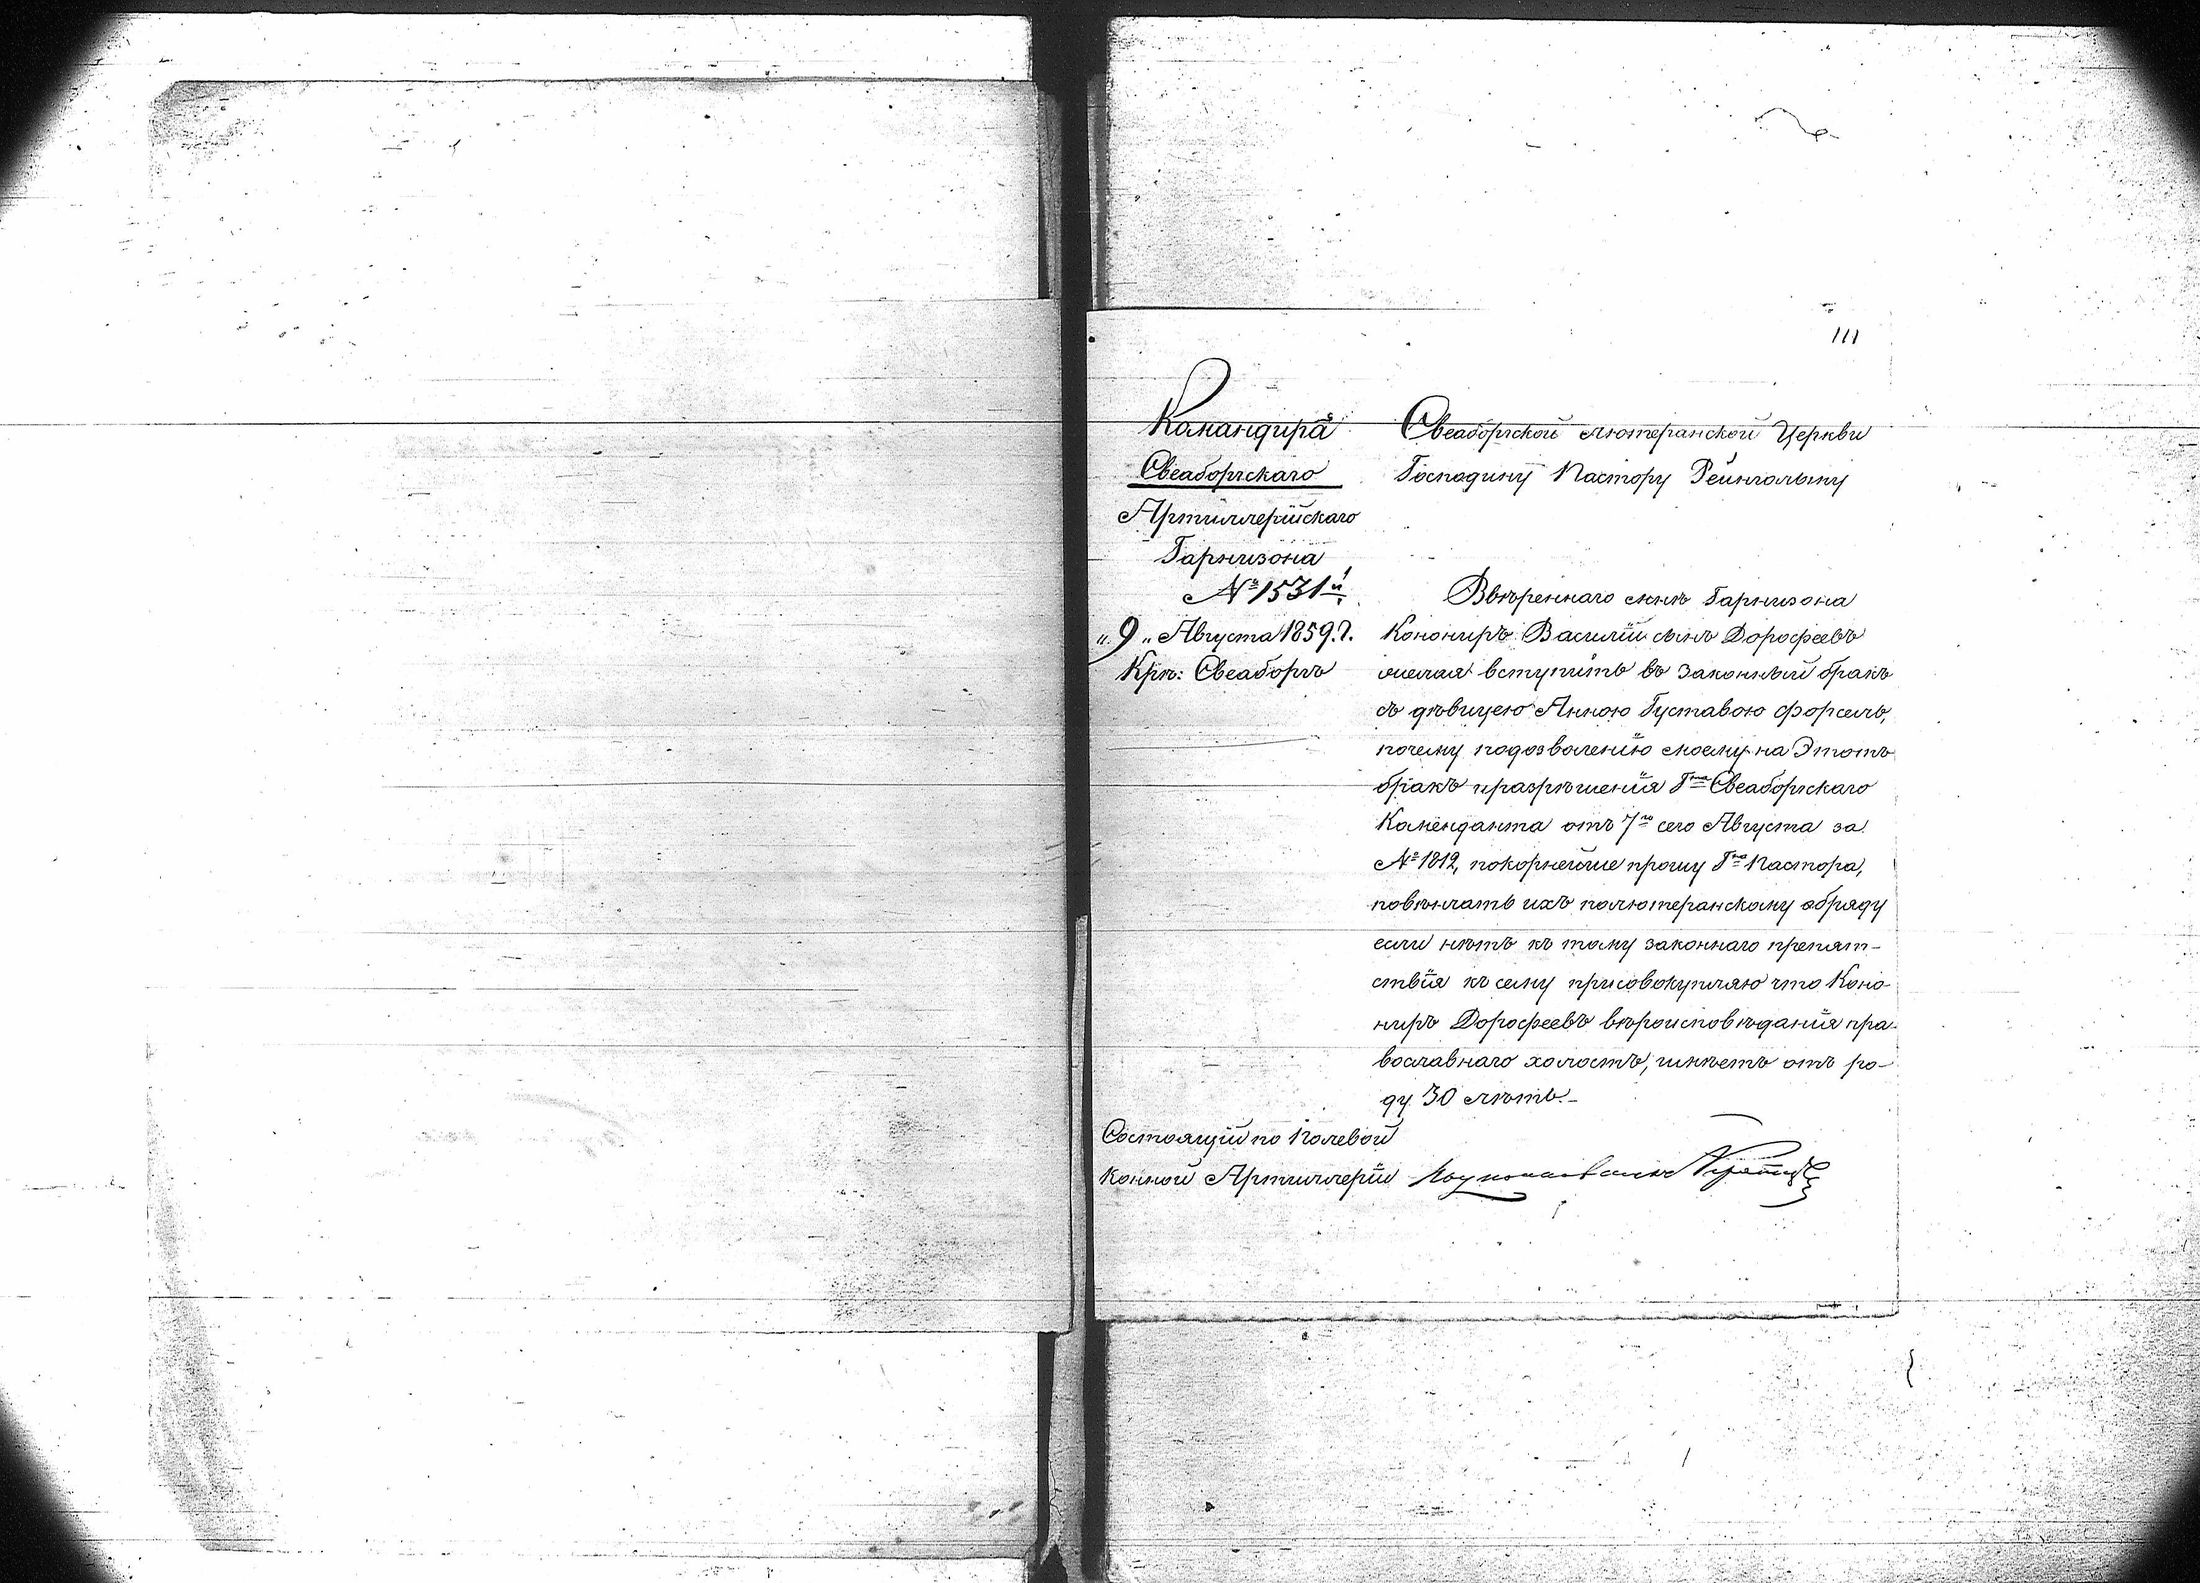 111
Командира
Свеаборгскаго
Артиллерійскаго
Гарнизона
№ 1531й
„9„ Августа 1859.г.
Крѣ: Свеаборгъ
Свеаборгской лютеранской Церкви
Господину Пастору
Ввѣреннаго мнѣ Гарнизона
Конониръ Василій сынъ Дорофеевъ
желая вступить въ законный бракъ
съ дѣвицею Анною Густавою Форсель,
почему подозволенію моему на Этотъ
бракъ иразрѣшенія Гна Свеаборгскаго
Коменданта отъ 7го сего Августа за
№ 1812, покорнейше прошу Гна Пастора,
повѣнчать ихъ полютеранскому обряду
если нѣтъ къ тому законнаго препят-
ствія къ сему присовокупляю что Коно-
ниръ Дорофеевъ вѣроисповѣданія пра-
вославнаго холостъ, имѣетъ отъ ро-
ду 30 лѣтъ.-
Состоящій по Полевой
Конной Артиллеріи